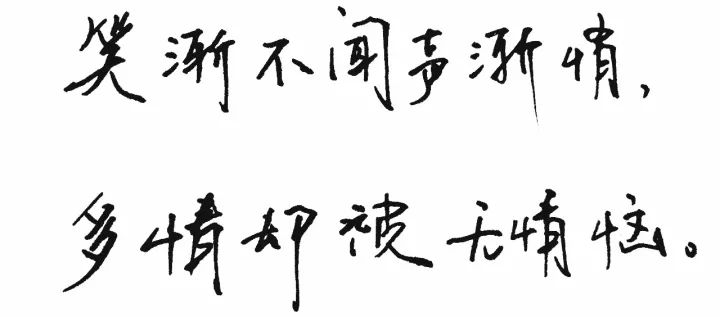 笑渐不闻声渐悄，
多情却被无情恼。